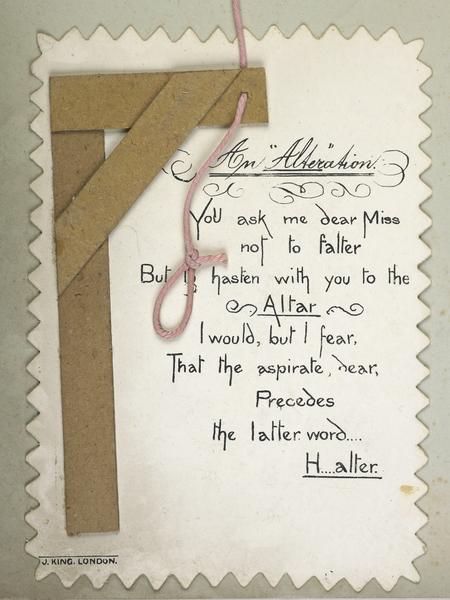 An "Alteration.
You ask me dear Miss
not to falter
But to hasten with you to the
Altar
I would, but I fear,
That the aspirate, dear,
Precedes
the latter word....
H...alter.
J. KING. LONDON.